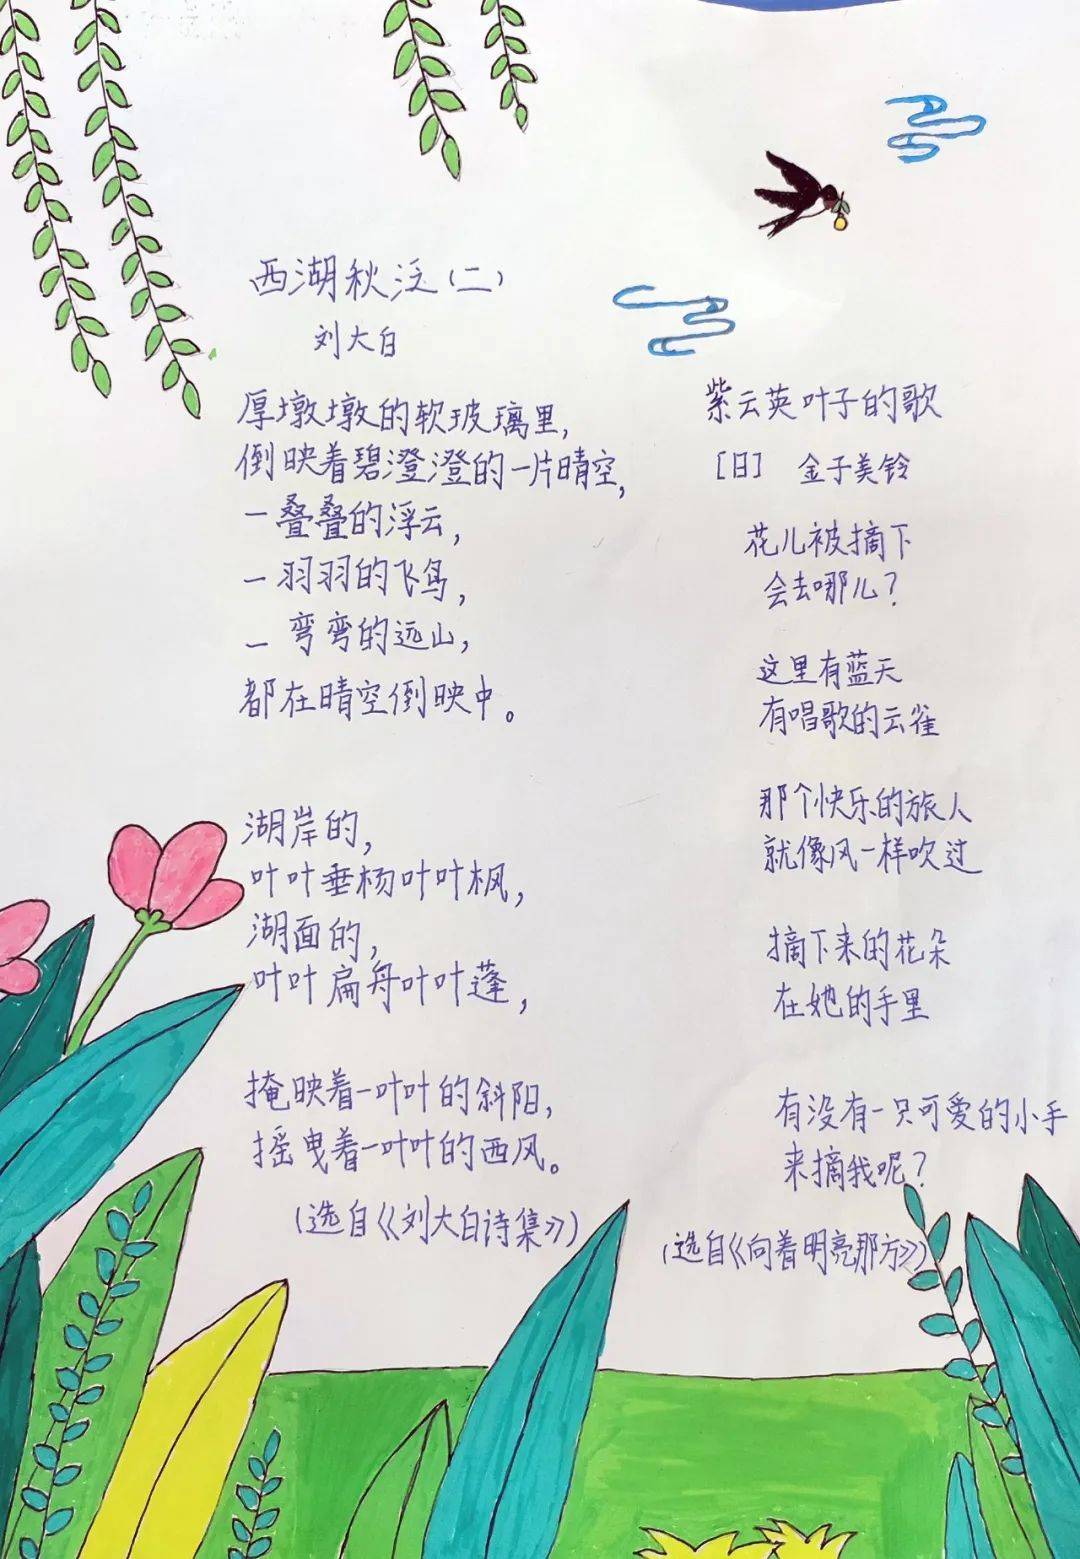 西湖秋泛(二)
刘大白
厚墩墩的软玻璃里，
倒映着碧澄澄的一片晴空，
一叠叠的浮云，
一羽羽的飞鸟，
一弯弯的远山，
都在晴空倒映中。
湖岸的，
叶叶垂杨叶叶枫，
湖面的，
叶叶扁舟叶叶蓬，
掩映着一叶叶的斜阳，
摇曳着一叶叶的西风。
(选自《刘大白诗集》)
紫云英叶子的歌
[日] 金子美铃
花儿被摘下
会去哪儿？
这里有蓝天
有唱歌的云雀
那个快乐的旅人
就像风一样吹过
摘下来的花朵
在她的手里
有没有一只可爱的小手
来摘我呢？
(选自《向着明亮那方》)